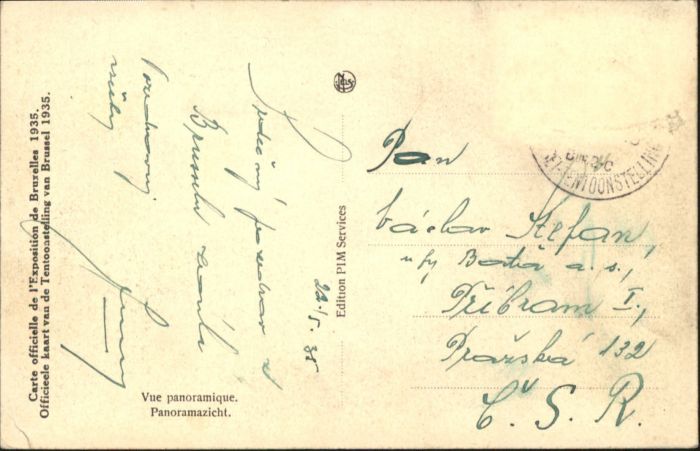 Carte officielle de l'Exposition de Bruxelles 1935.
Officieele kaart van de Tentoonstelling van Brussel 1935.
Srdečný pozdrav z
Bruselu zasílá
22. 5. 35
Vue panoramique.
Panoramazicht.
Edition PIM Services
TENTOONSTELLING
Pan
Václav Štefan,
u fy Baťa a. s.,
Příbram I.,
Pražská 132
Č. S. R.